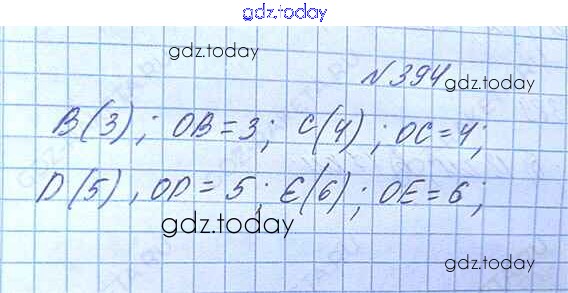 gdz.today
gdz.today
№394
gdz.today
B(3); OB=3; C(4); OC=4;
D(5), OD=5; E(6); OE=6;
gdz.today
gdz.today